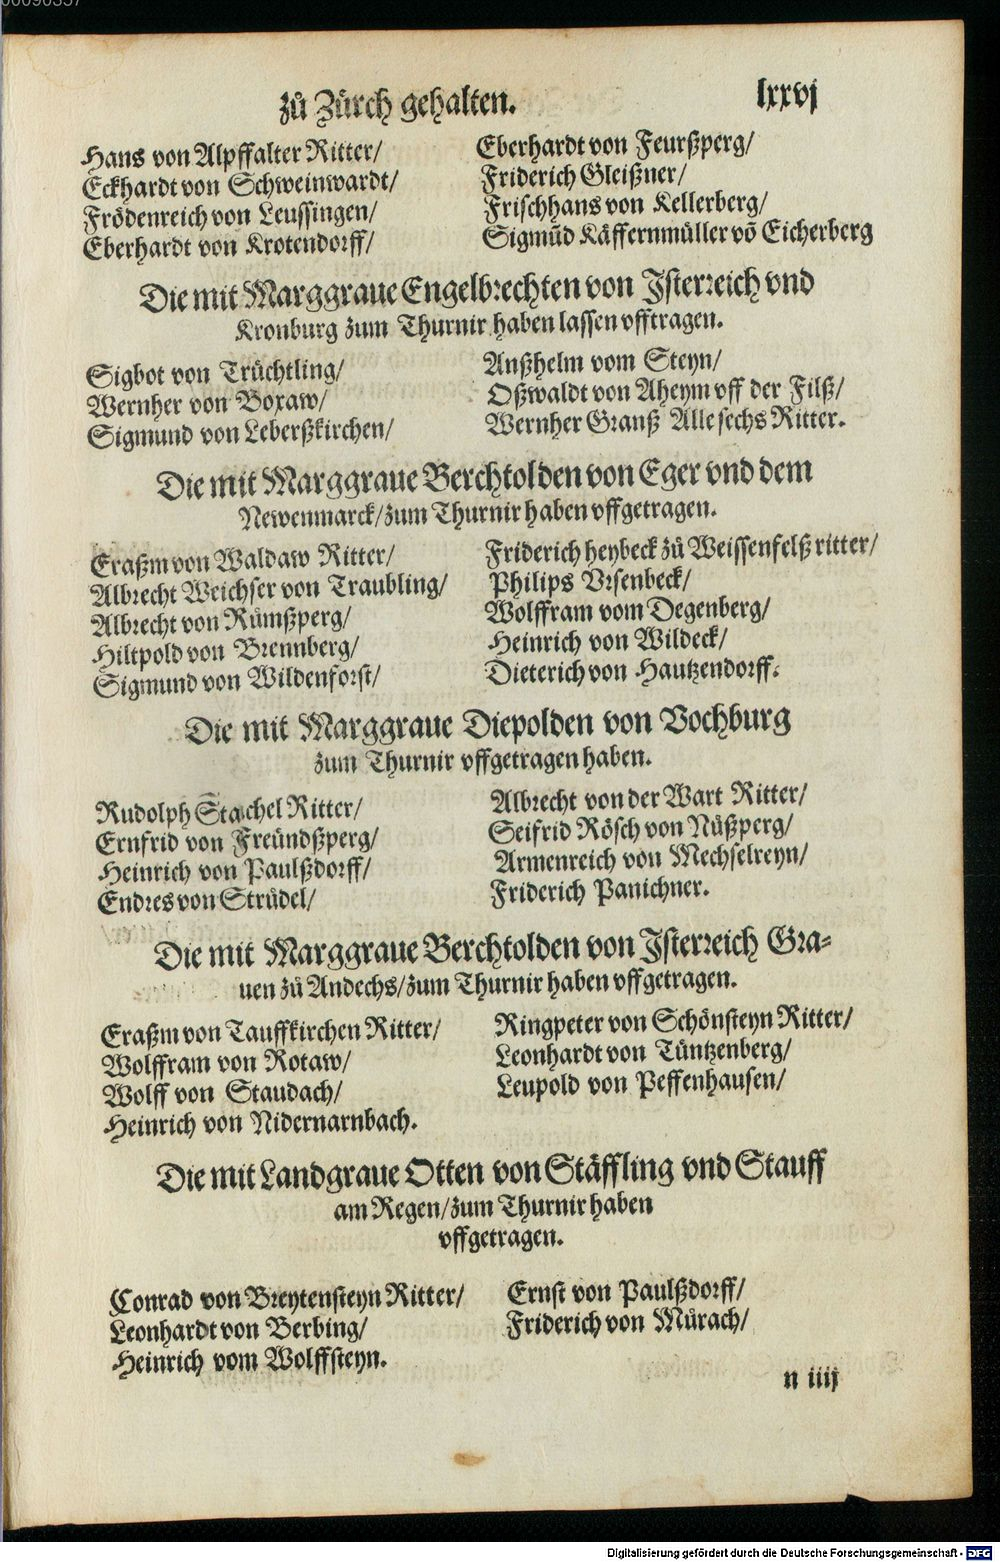 zů Zürch gehalten.
lxxvj
Hans von Alpffalter Ritter/
Eckhardt von Schweinwardt/
Frödenreich von Leussingen/
Eberhardt von Krotendorff/
Eberhardt von Feurßperg/
Friderich Gleißner/
Frischhans von Kellerberg/
Sigmũd Käffernmüller võ Eicherberg
Die mit Marggraue Engelbrechten von Isterreich vnd
Kronburg zum Thurnir haben lassen vfftragen.
Sigbot von Trüchtling/
Wernher von Boxaw/
Sigmund von Leberßkirchen/
Anßhelm vom Steyn/
Oßwaldt von Aheym vff der Filß/
Wernher Granß Alle sechs Ritter.
Die mit Marggraue Berchtolden von Eger vnd dem
Newenmarck/zum Thurnir haben vffgetragen.
Eraßm von Waldaw Ritter/
Albrecht Weichser von Traubling/
Albrecht von Rümßperg/
Hiltpold von Brennberg/
Sigmund von Wildenforst/
Friderich heybeck zů Weissenfelß ritter/
Philips Vrsenbeck/
Wolffram vom Degenberg/
Heinrich von Wildeck/
Dieterich von Hautzendorff.
Die mit Marggraue Diepolden von Vochburg
zum Thurnir vffgetragen haben.
Rudolph Stachel Ritter/
Ernfrid von Freündßperg/
Heinrich von Paulßdorff/
Endres von Strüdel/
Albrecht von der Wart Ritter/
Seifrid Rösch von Nüßperg/
Armenreich von Mechselreyn/
Friderich Panichner.
Die mit Marggraue Berchtolden von Isterreich Gra-
uen zů Andechs/zum Thurnir haben vffgetragen.
Eraßm von Tauffkirchen Ritter/
Wolffram von Rotaw/
Wolff von Staudach/
Heinrich von Nidernarnbach.
Ringpeter von Schönsteyn Ritter/
Leonhardt von Tüntzenberg/
Leupold von Peffenhausen/
Die mit Landgraue Otten von Stäffling vnd Stauff
am Regen/zum Thurnir haben
vffgetragen.
Conrad von Breytensteyn Ritter/
Leonhardt von Berbing/
Heinrich vom Wolffsteyn.
Ernst von Paulßdorff/
Friderich von Mürach/
n iiij
Digitalisierung gefördert durch die Deutsche Forschungsgemeinschaft - DFG